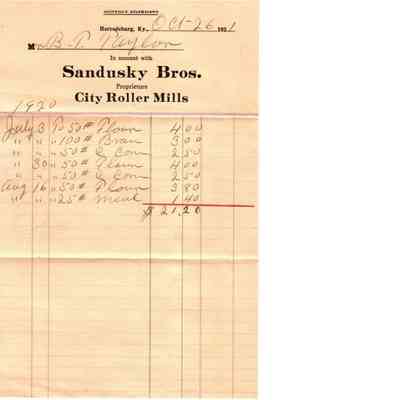 MONTHLY STATEMENT
Harrodsburg, Ky., Oct-26 1921
M B. T. Taylor
In account with
Sandusky Bros.
Proprietors
City Roller Mills
1920
July 3 To 50# Flour 4 00
" " " 100# Bran 3 00
" " " 50# C Corn 2 50
" 30 " 50# Flour 4 00
" " " 50# C Corn 2 50
Aug 16 " 50# Flour 3 80
" " " 25# Meal 1 40
$ 21.20